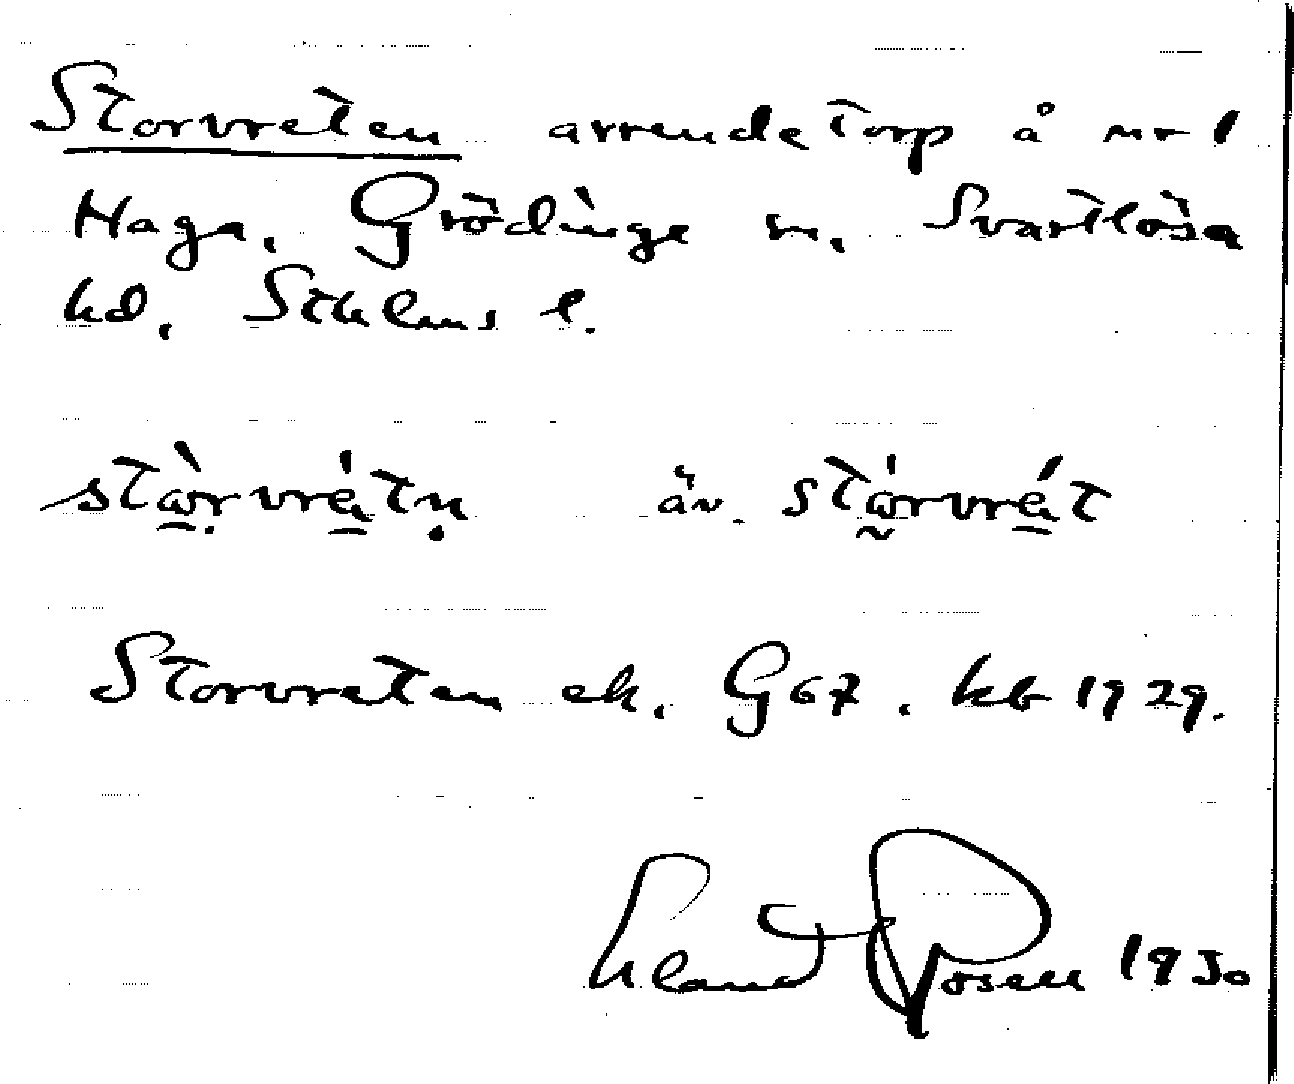 Storvreten arrendetorp å nr 1
Haga, Grödinge sn, Svartlösa
hd, Sthlms l.
stòrvrétn äv. stórvrét
Storvreten ek. G67. kb 1929.
Rosell 1930